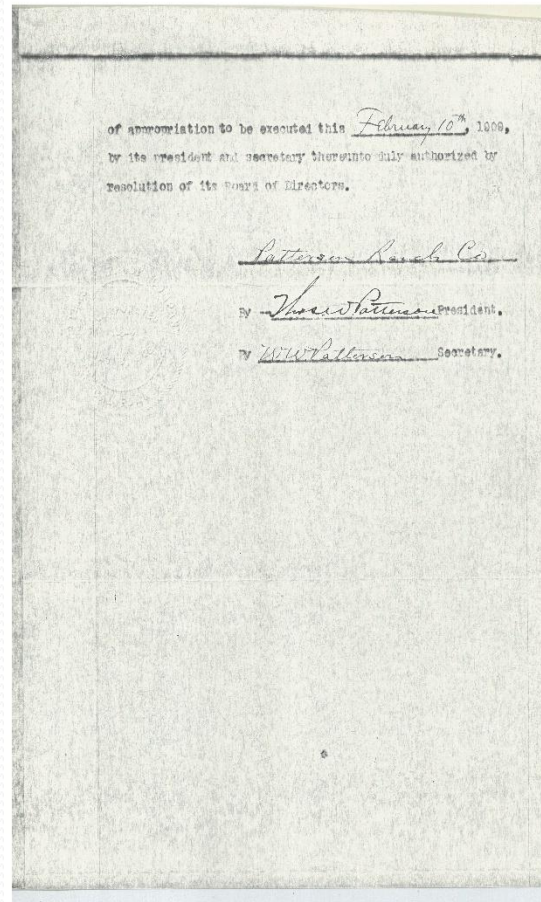 of appropriation to be executed this February 10th, 1909,
by its president and secretary thereunto duly authorized by
resolution of its Board of Directors.
Patterson Ranch Co
By Thos W Patterson President.
By W W Patterson Secretary.